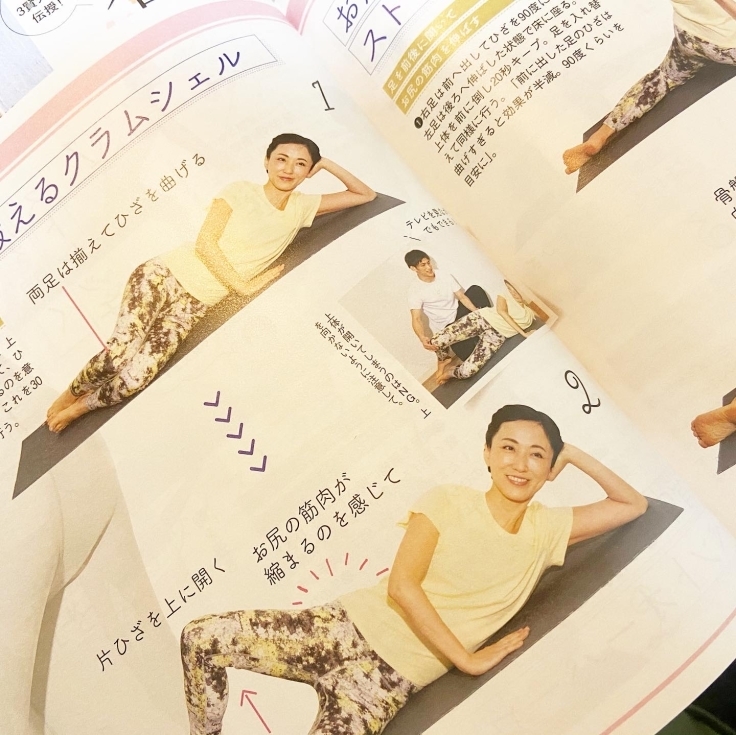 伝授!
鍛えるクラムシェル
1
両足は揃えてひざを曲げる
これを30
テレビを見な
でもできる
上体が開いてしまうのはNG。上
を向かないように注意して。
2
お尻の筋肉が
縮まるのを感じて
片ひざを上に開く
スト
足を前後に開いて
お尻の筋肉を伸ばす
❶右足は前へ出してひざを90度に
左足は後ろへ伸ばした状態で床に座る。
上体を前に倒し20秒キープ。足を入れ替
えて同様に行う。「前に出した足のひざは
曲げすぎると効果が半減。90度くらいを
目安に」。
骨盤